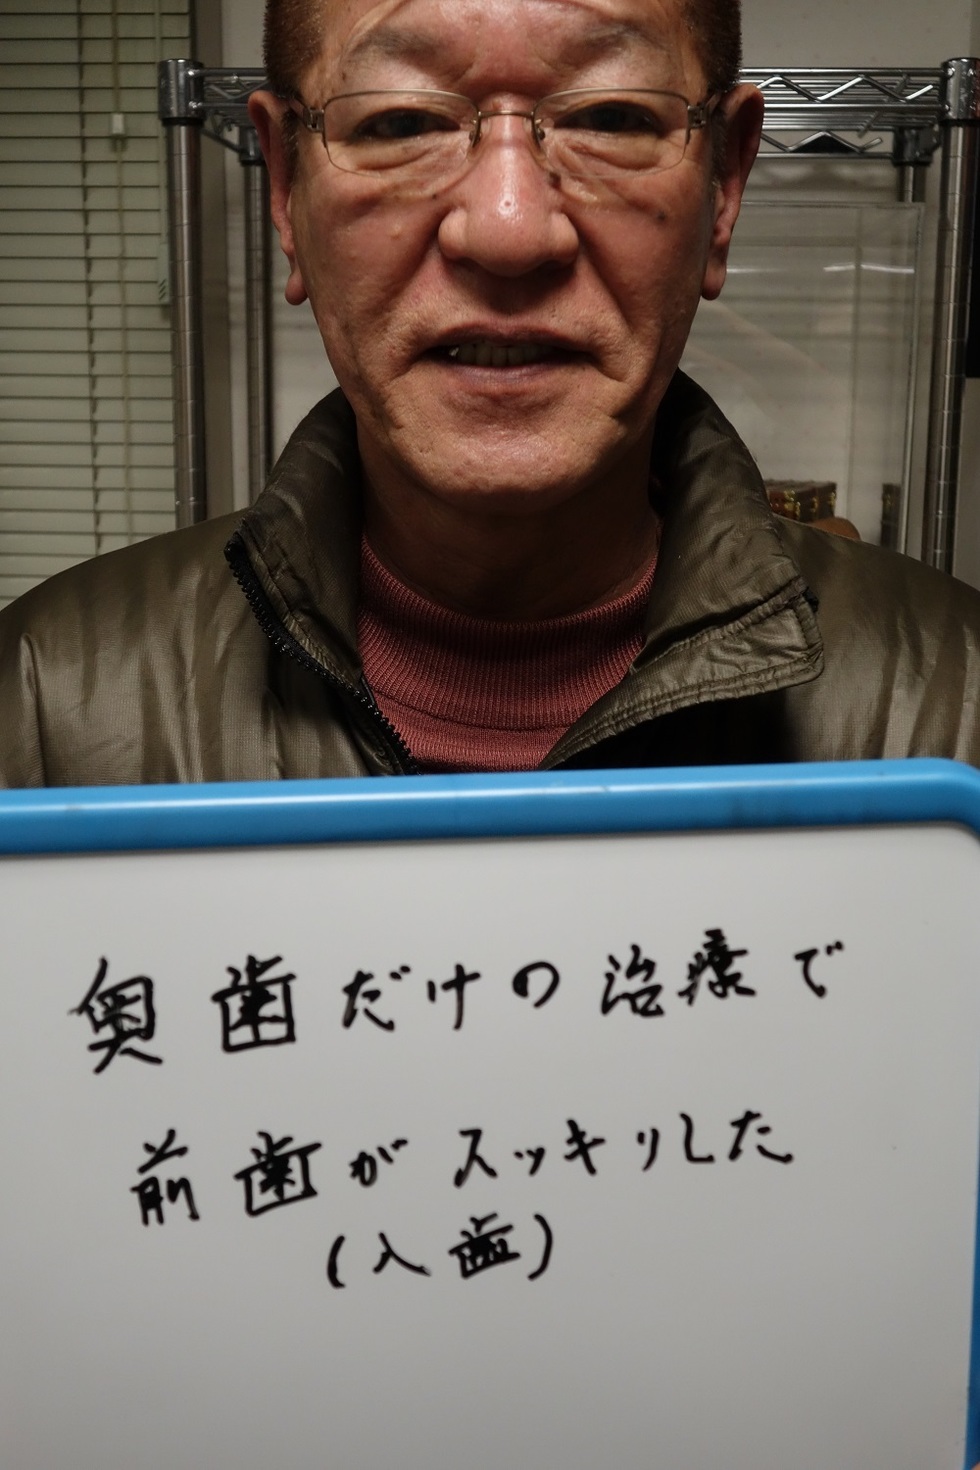 奥歯だけの治療で
前歯がスッキリした
(入歯)